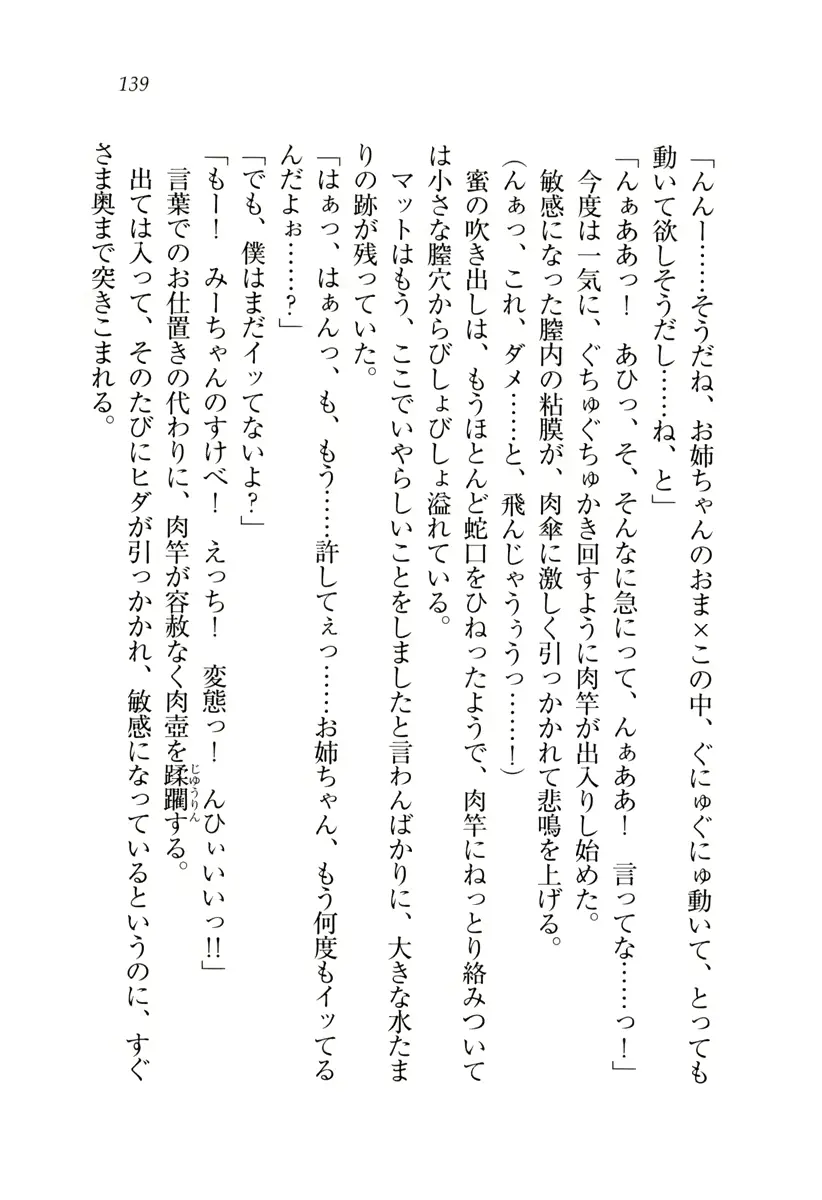 139
「んんー……そうだね、お姉ちゃんのおま×この中、ぐにゅぐにゅ動いて、とっても
動いて欲しそうだし……ね、と」
「んぁああっ！　あひっ、そ、そんなに急にって、んぁああ！　言ってな……っ！」
今度は一気に、ぐちゅぐちゅかき回すように肉竿が出入りし始めた。
敏感になった膣内の粘膜が、肉傘に激しく引っかかれて悲鳴を上げる。
（んぁっ、これ、ダメ……と、飛んじゃうぅうっ……！）
蜜の吹き出しは、もうほとんど蛇口をひねったようで、肉竿にねっとり絡みついて
は小さな膣穴からびしょびしょ溢れている。
マットはもう、ここでいやらしいことをしましたと言わんばかりに、大きな水たま
りの跡が残っていた。
「はぁっ、はぁんっ、も、もう……許してぇっ……お姉ちゃん、もう何度もイッてる
んだよぉ……？」
「でも、僕はまだイッてないよ？」
「もー！　みーちゃんのすけべ！　えっち！　変態っ！　んひぃいいっ!!」
言葉でのお仕置きの代わりに、肉竿が容赦なく肉壺を蹂躙じゅうりんする。
出ては入って、そのたびにヒダが引っかかれ、敏感になっているというのに、すぐ
さま奥まで突きこまれる。